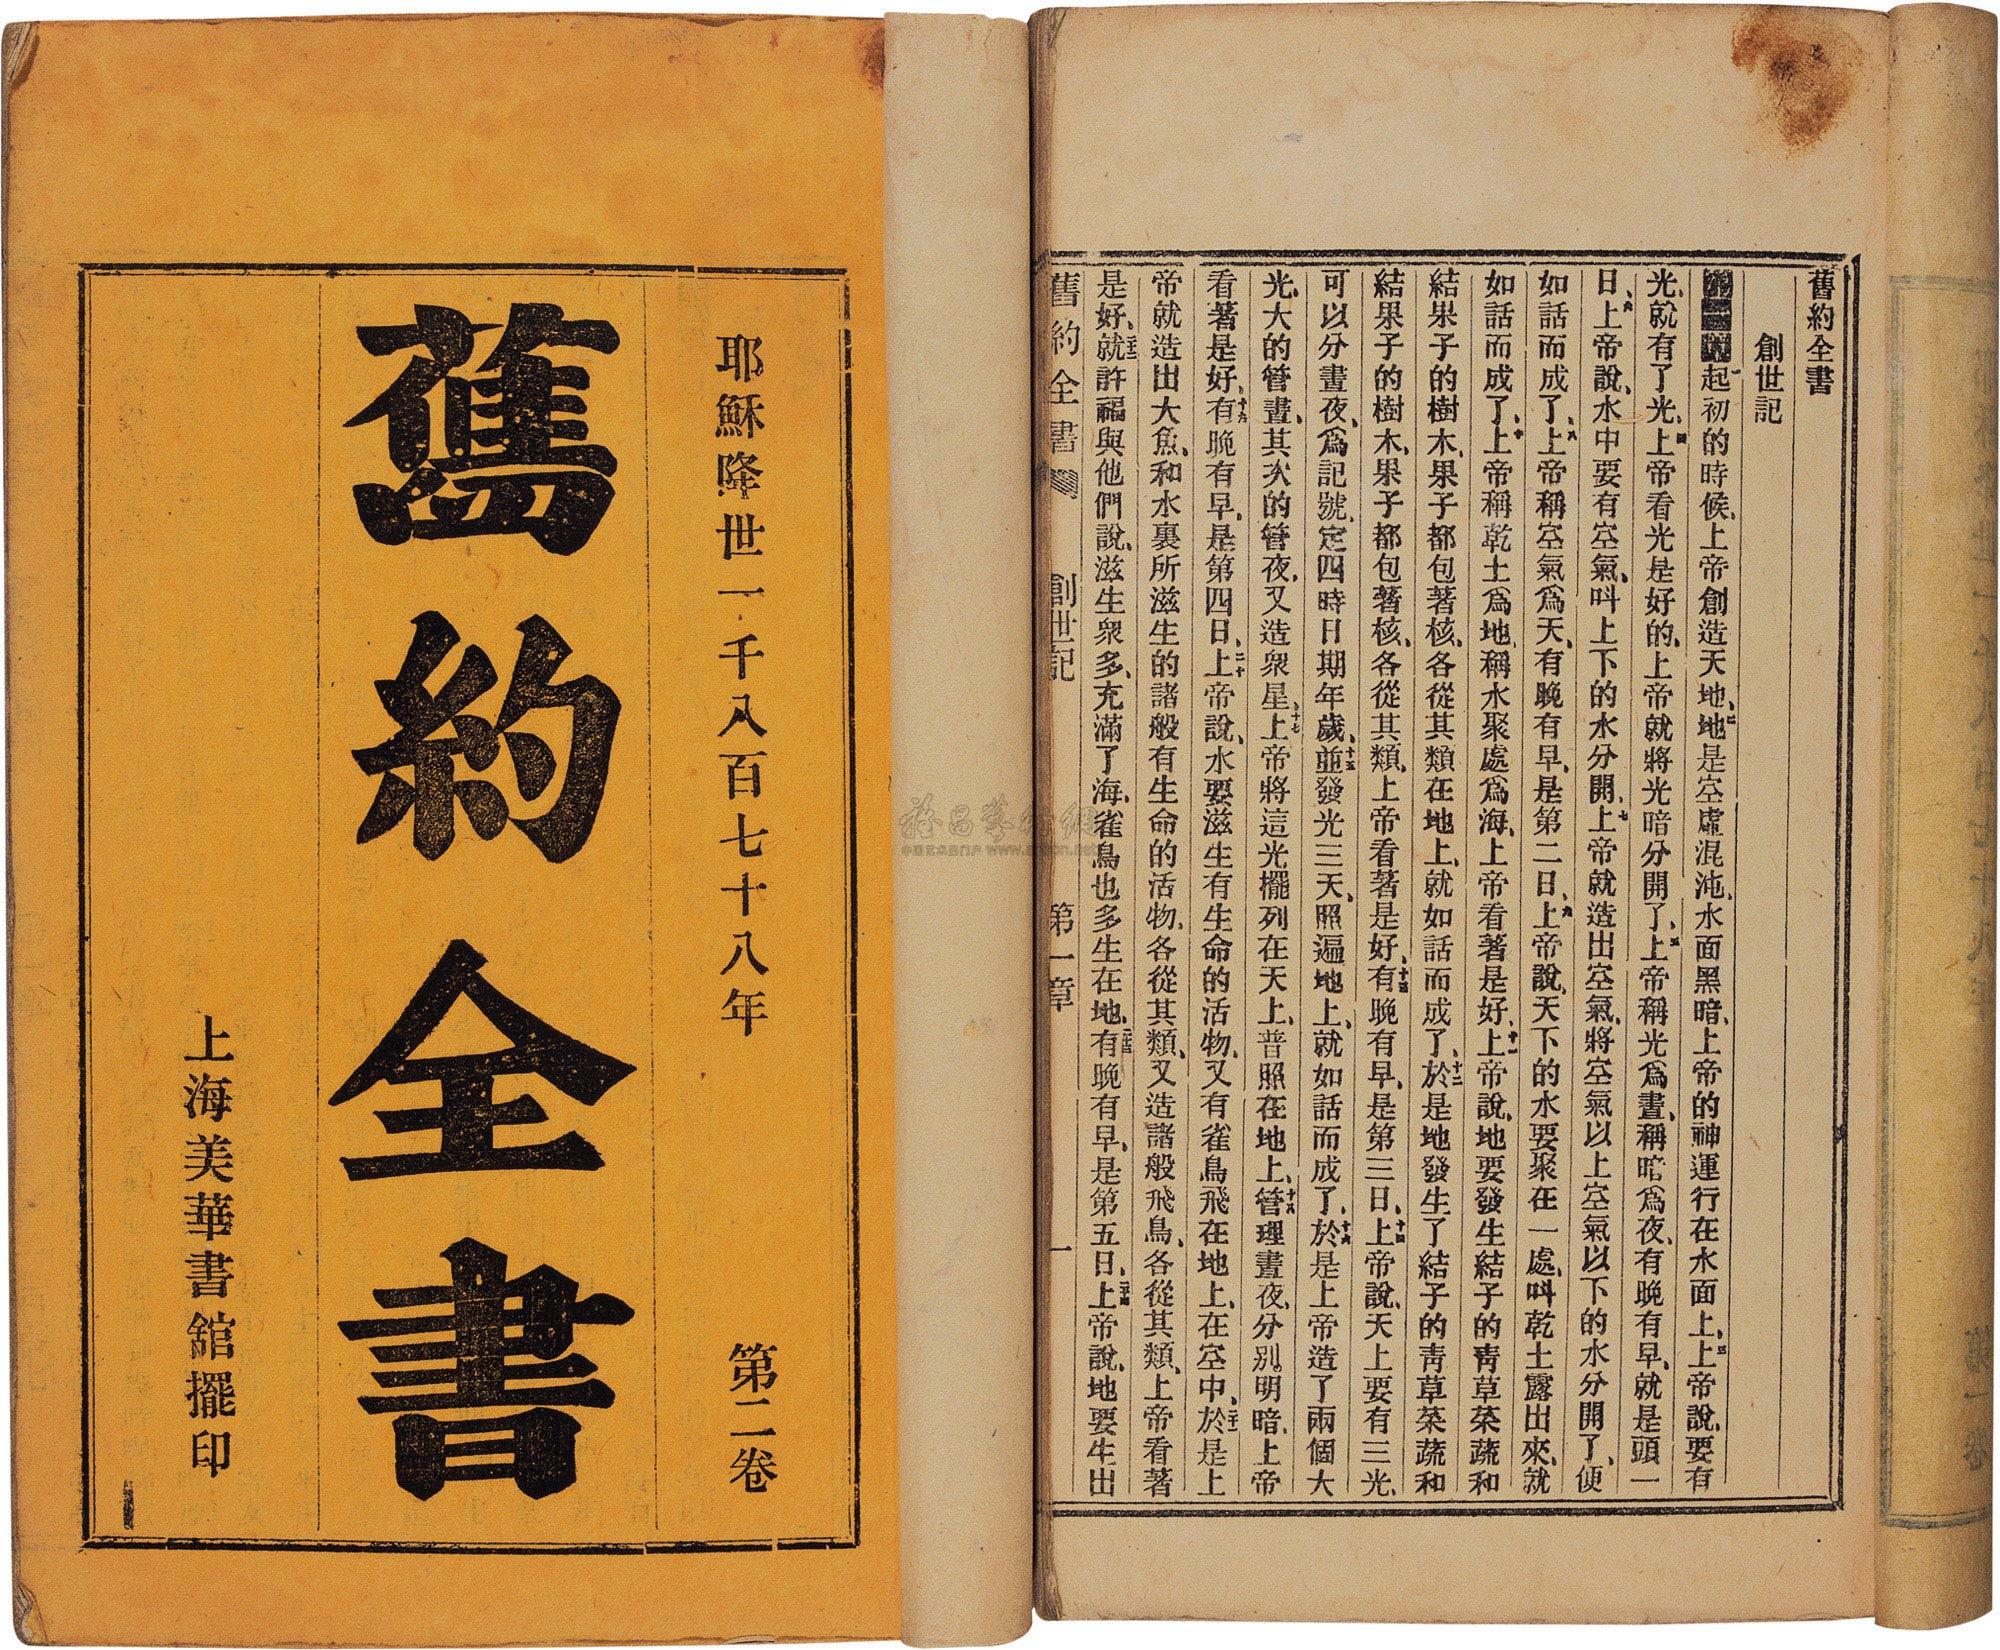 舊約全書
創世記
起初的時候、上帝創造天地、地是空虛混沌、水面黑暗、上帝的神運行在水面上、上帝說、要有
光、就有了光、上帝看光是好的、上帝就將光暗分開了、上帝稱光爲晝、稱暗爲夜、有晚有早、就是頭一
日、上帝說、水中要有空氣、叫上下的水分開、上帝就造出空氣、將空氣以上空氣以下的水分開了、便
如話而成了、上帝稱空氣爲天、有晚有早、是第二日、上帝說、天下的水要聚在一處、叫乾土露出來、就
如話而成了、上帝稱乾土爲地、稱水聚處爲海、上帝看著是好、上帝說、地要發生結子的靑草菜蔬和
結果子的樹木、果子都包著核、各從其類在地上、就如話而成了、於是地發生了結子的靑草菜蔬和
結果子的樹木、果子都包著核、各從其類、上帝看著是好、有晚有早、是第三日、上帝說、天上要有三光、
可以分晝夜、爲記號、定四時日期年歲、並發光三天、照遍地上、就如話而成了、於是上帝造了兩個大
光、大的管晝、其次的管夜、又造衆星、上帝將這光擺列在天上、普照在地上、管理晝夜、分別明暗、上帝
看著是好、有晚有早、是第四日、上帝說、水要滋生有生命的活物、又有雀鳥飛在地上、在空中、於是上
帝就造出大魚、和水裏所滋生的諸般有生命的活物、各從其類、又造諸般飛鳥、各從其類、上帝看著
是好、就許福與他們說、滋生衆多、充滿了海、雀鳥也多生在地、有晚有早、是第五日、上帝說、地要生出
舊約全書 創世記 第一章 一
耶穌降世一千八百七十八年 第二卷
舊約全書
上海美華書館擺印